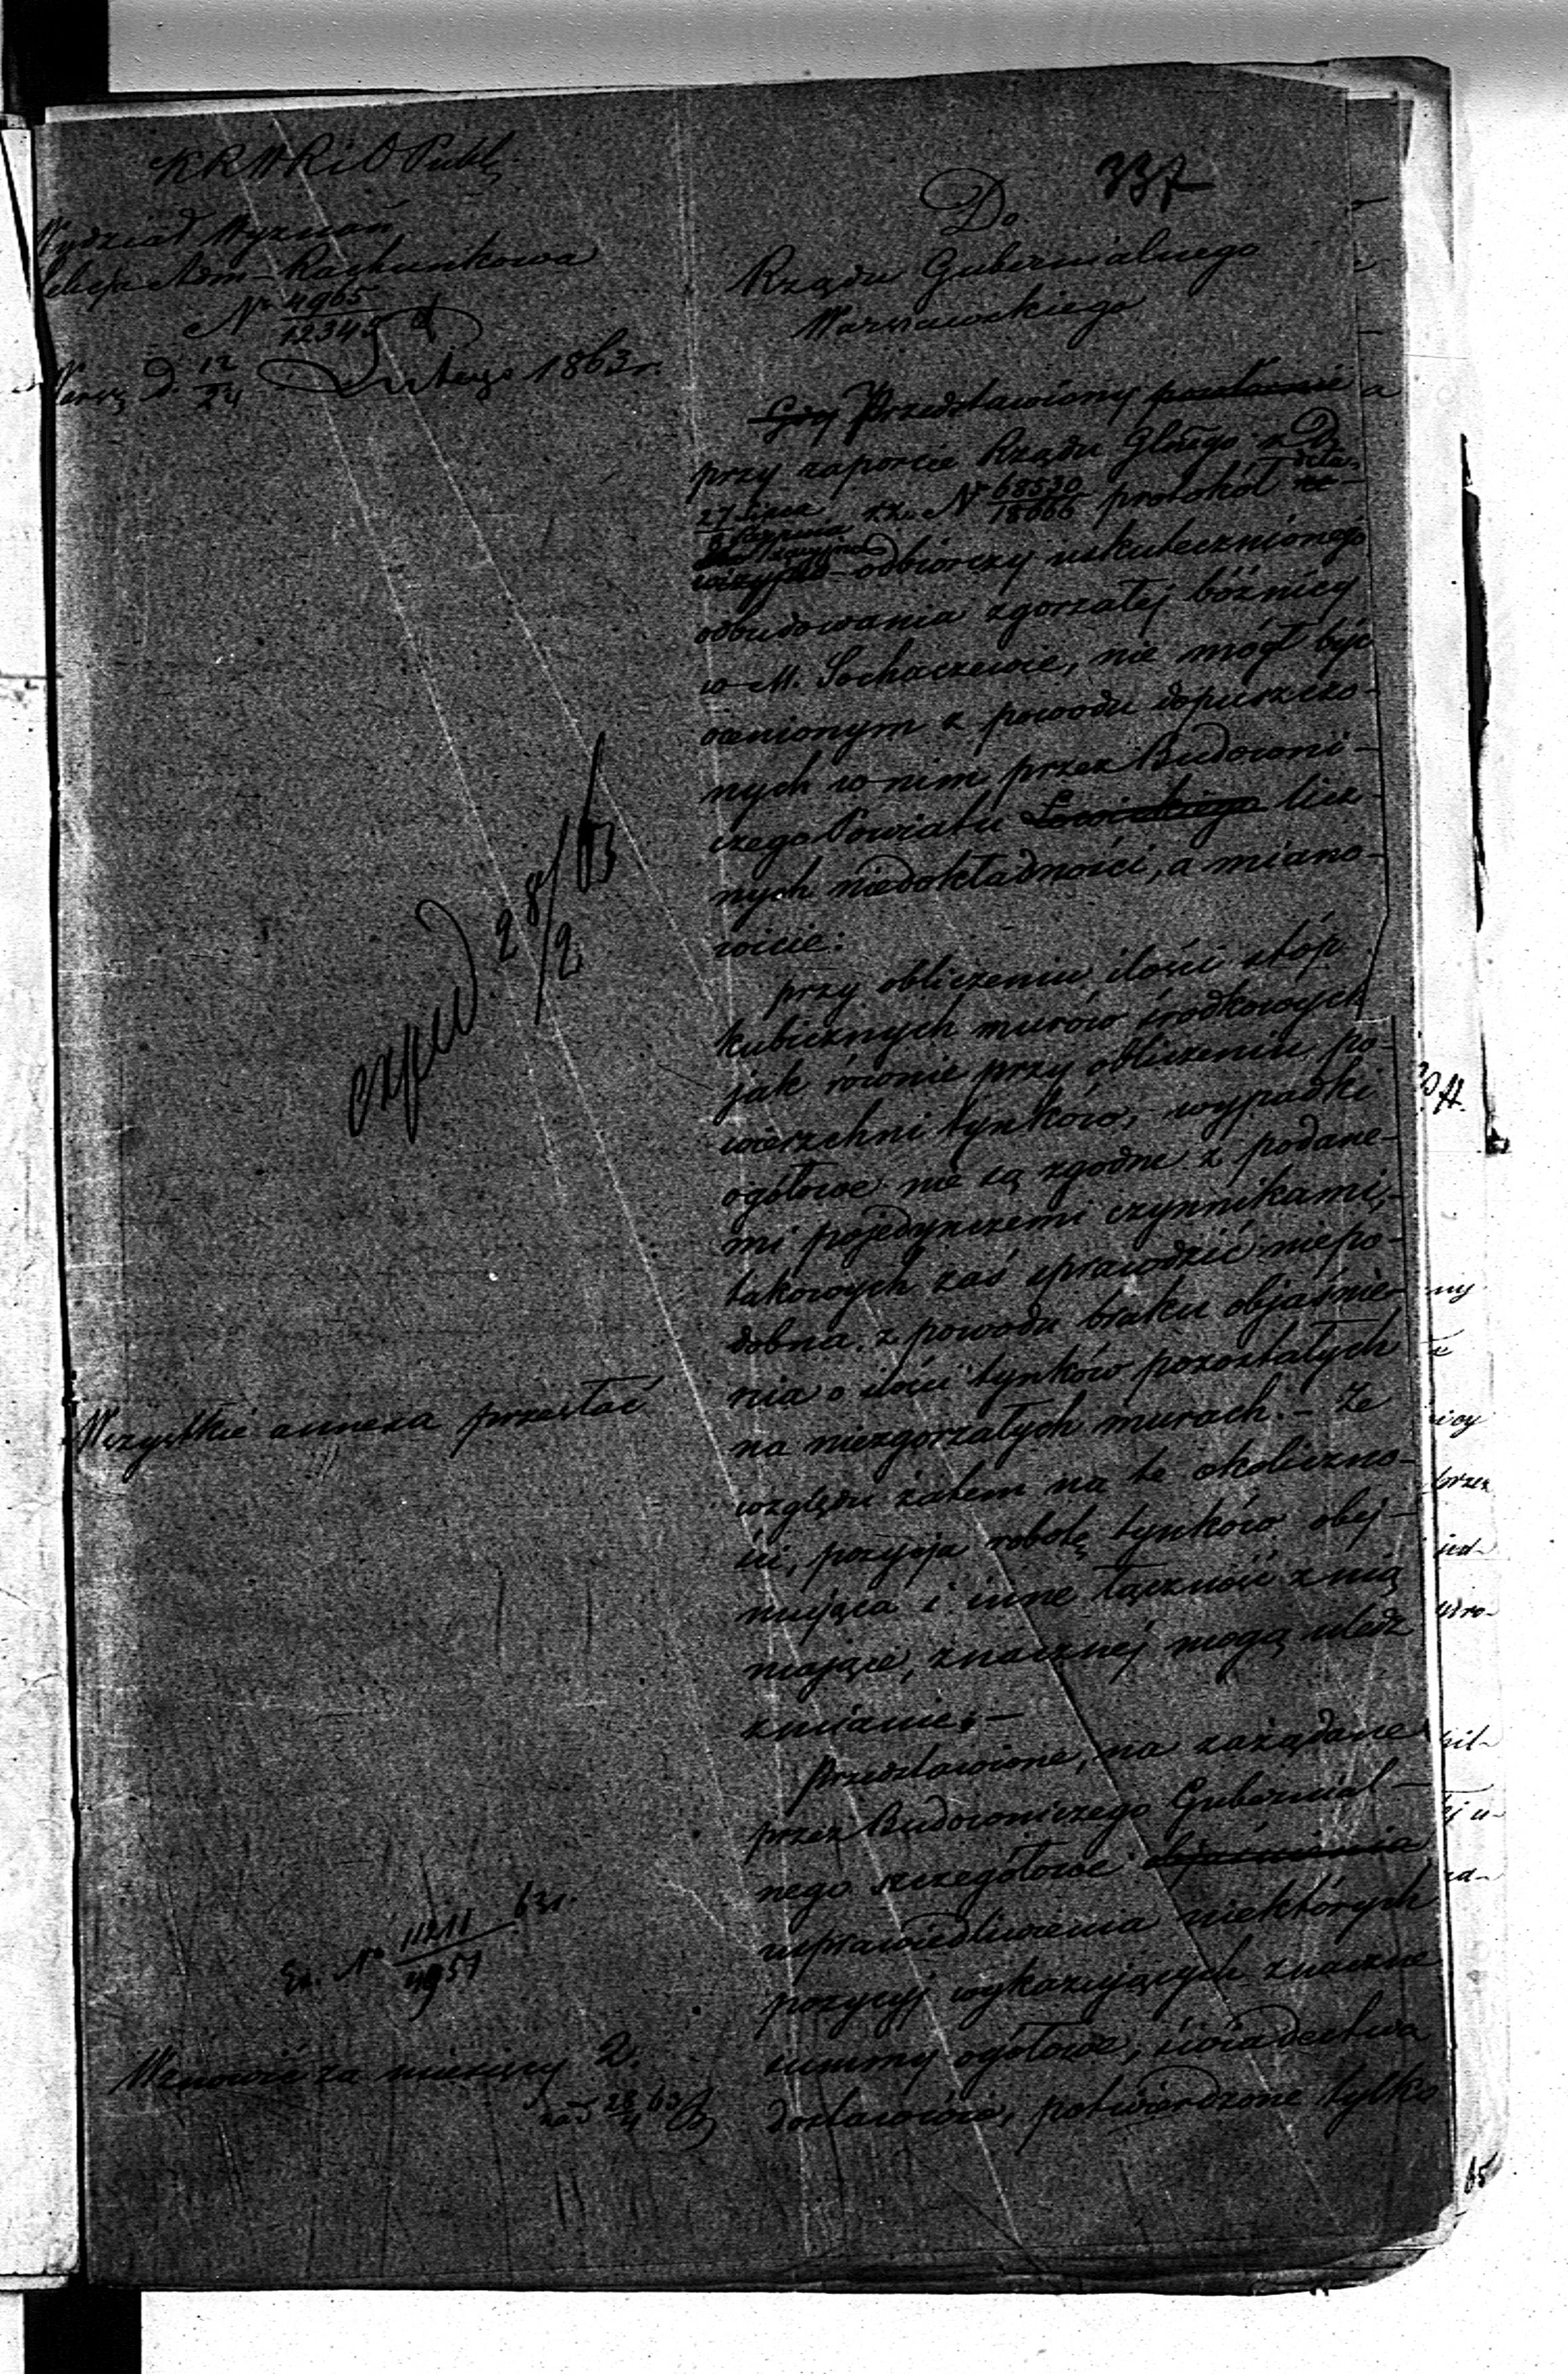 KRWRiOPubl
337
Wydział Wyznań
Sekcja Adm-Rachunkowa
№ 4965
12345
Warsz. d. 12
24 Lutego 1863 r.
Do
Rządu Gubernialnego
Warszawskiego
Przedstawiony
przy raporcie Rządu Glnego z D.
27 Lipca
8 Sierpnia zz. № 68530
18666 protokół
odbiorczy uskutecznionego
odbudowania zgorzałej bóżnicy
w M. Sochaczewie, nie mógł być
ocenionym z powodu dopuszczo-
nych w nim przez Budowni-
czego Powiatu Łowickiego licz-
nych niedokładności, a miano-
wicie:
przy obliczeniu ilości stóp
kubicznych murów środkowych
jak równie przy obliczeniu po-
wierzchni tynków, wypadki
ogółowe nie są zgodne z podane-
mi pojedynczemi czynnikami,-
takowych zaś sprawdzić niepo-
dobna z powodu braku objaśnie-
nia o ilości tynków pozostałych
na niezgorzałych murach. - Ze
względu zatem na te okoliczno-
ści, pozycja robotę tynków obej-
mująca i inne łączność z nią
mające, znacznej mogą uledz
zmianie; -
przedstawione, na zażądane
przez Budowniczego Gubernial-
nego szczegółowe objaśnienia
usprawiedliwienia niektórych
pozycyj wykazujących znaczne
summy ogółowe, świadectwa
dostawców, potwierdzone tylko
exped. 28/2 63
Wszystkie annexa przesłać
Ex. № 11211
4957 63 r.
Wznowić za miesięcy 2.